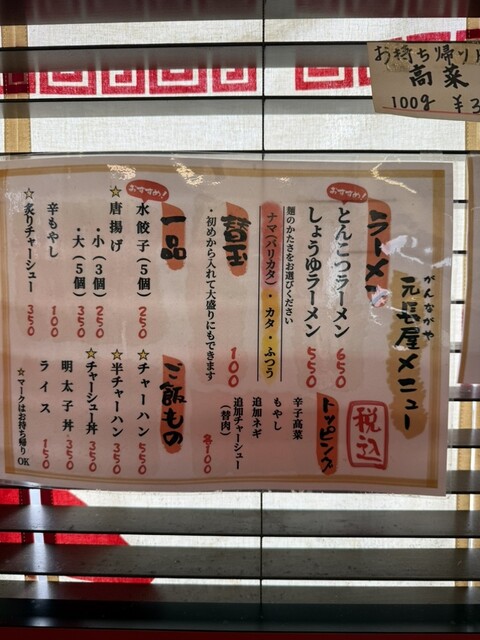 お持ち帰り
高菜
100g ¥3
がんながや
元長屋メニュー
税込
ラーメン
おすすめ!
とんこつラーメン 650
しょうゆラーメン 550
麺のかたさをお選びください
ナマ(バリカタ)・カタ・ふつう
替玉 100
・初めから入れて大盛りにもできます
トッピング
辛子高菜
もやし
追加ネギ
追加チャーシュー
(替肉)
各100
一品
おすすめ!
水餃子(5個) 250
☆唐揚げ
・小(3個) 250
・大(5個) 350
辛もやし 100
☆炙りチャーシュー 350
ご飯もの
☆チャーハン 550
☆半チャーハン 350
☆チャーシュー丼 350
明太子丼 350
ライス 150
☆マークはお持ち帰りOK